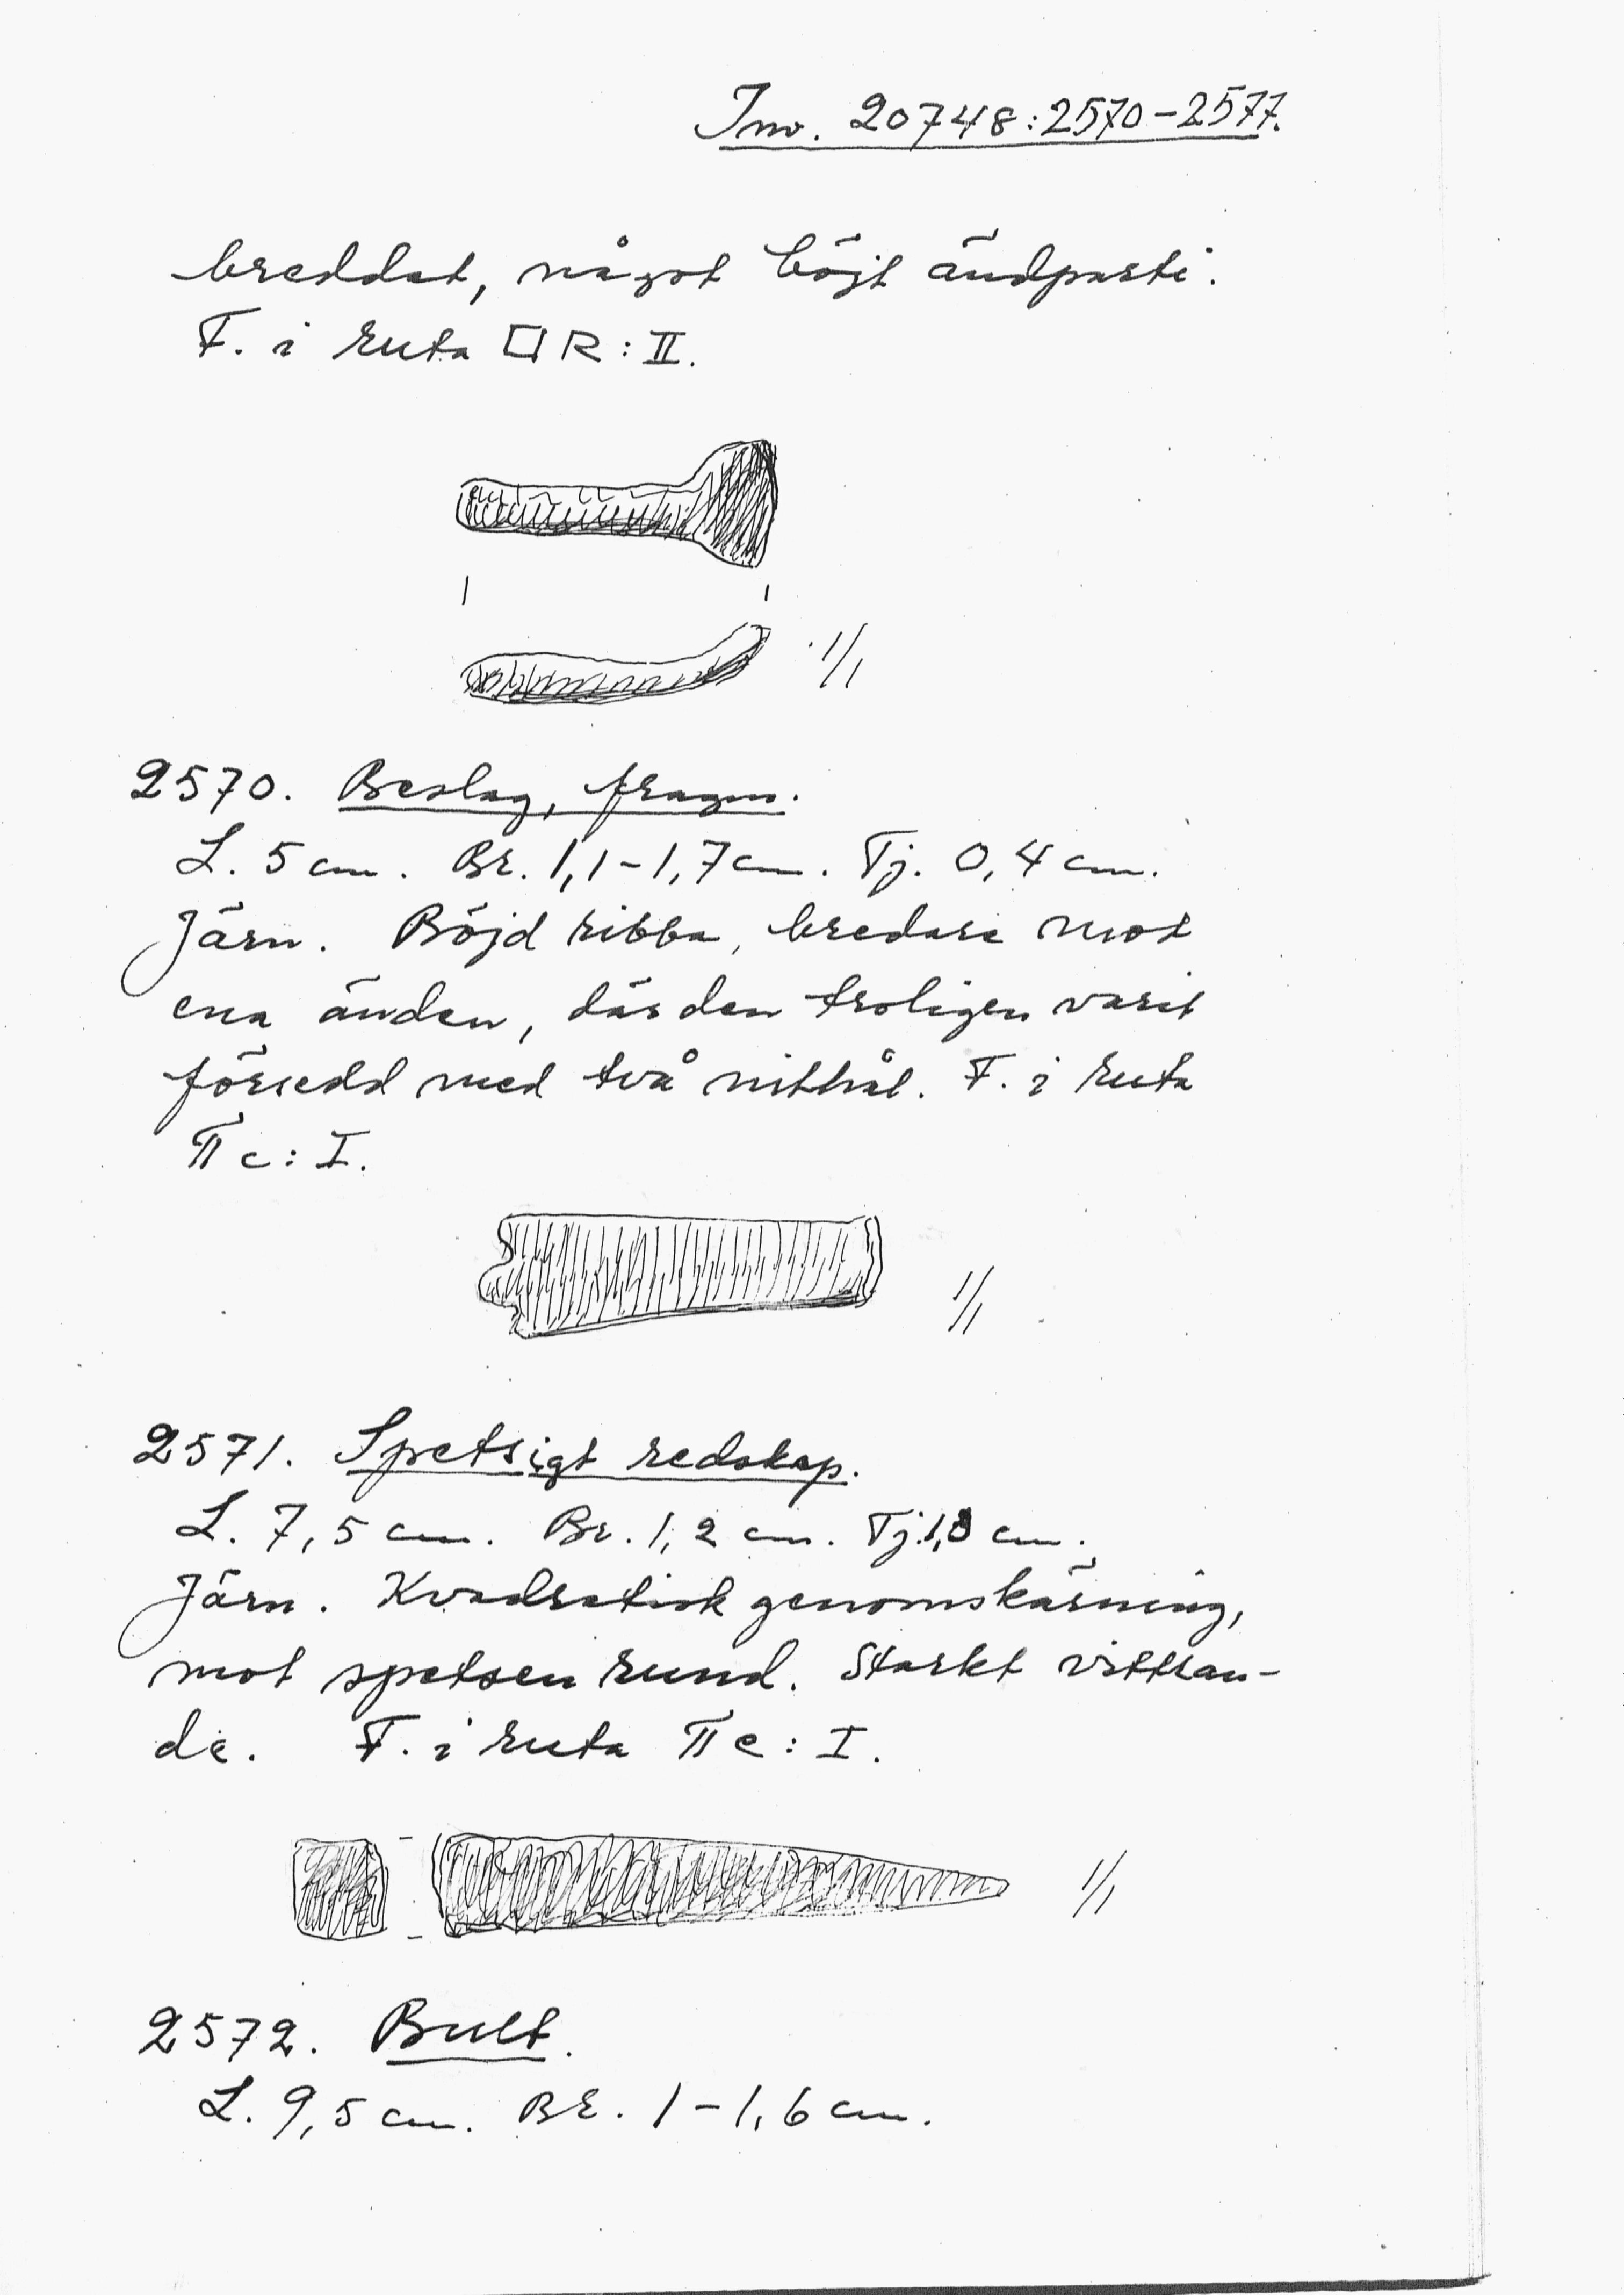 Inv. 20748:2570-2577.
breddat, något böjt ändparti.
F. i ruta □ R: II.
1/1
2570. Beslag, fragm.
L. 5 cm. Br. 1,1-1,7 cm. Tj. 0,4 cm.
Järn. Böjd ribba, bredare mot
ena änden, där den troligen varit
försedd med två nithål. F. i ruta
II c: I.
1/1
2571. Spetsigt redskap.
L. 7,5 cm. Br. 1,2 cm. Tj. cm.
Järn. Kvadratisk genomskärning,
mot spetsen rund. Starkt vittran-
de. F. i ruta II c: I.
1/1
2572. Bult.
L. 9,5 cm. Br. 1-1,6 cm.